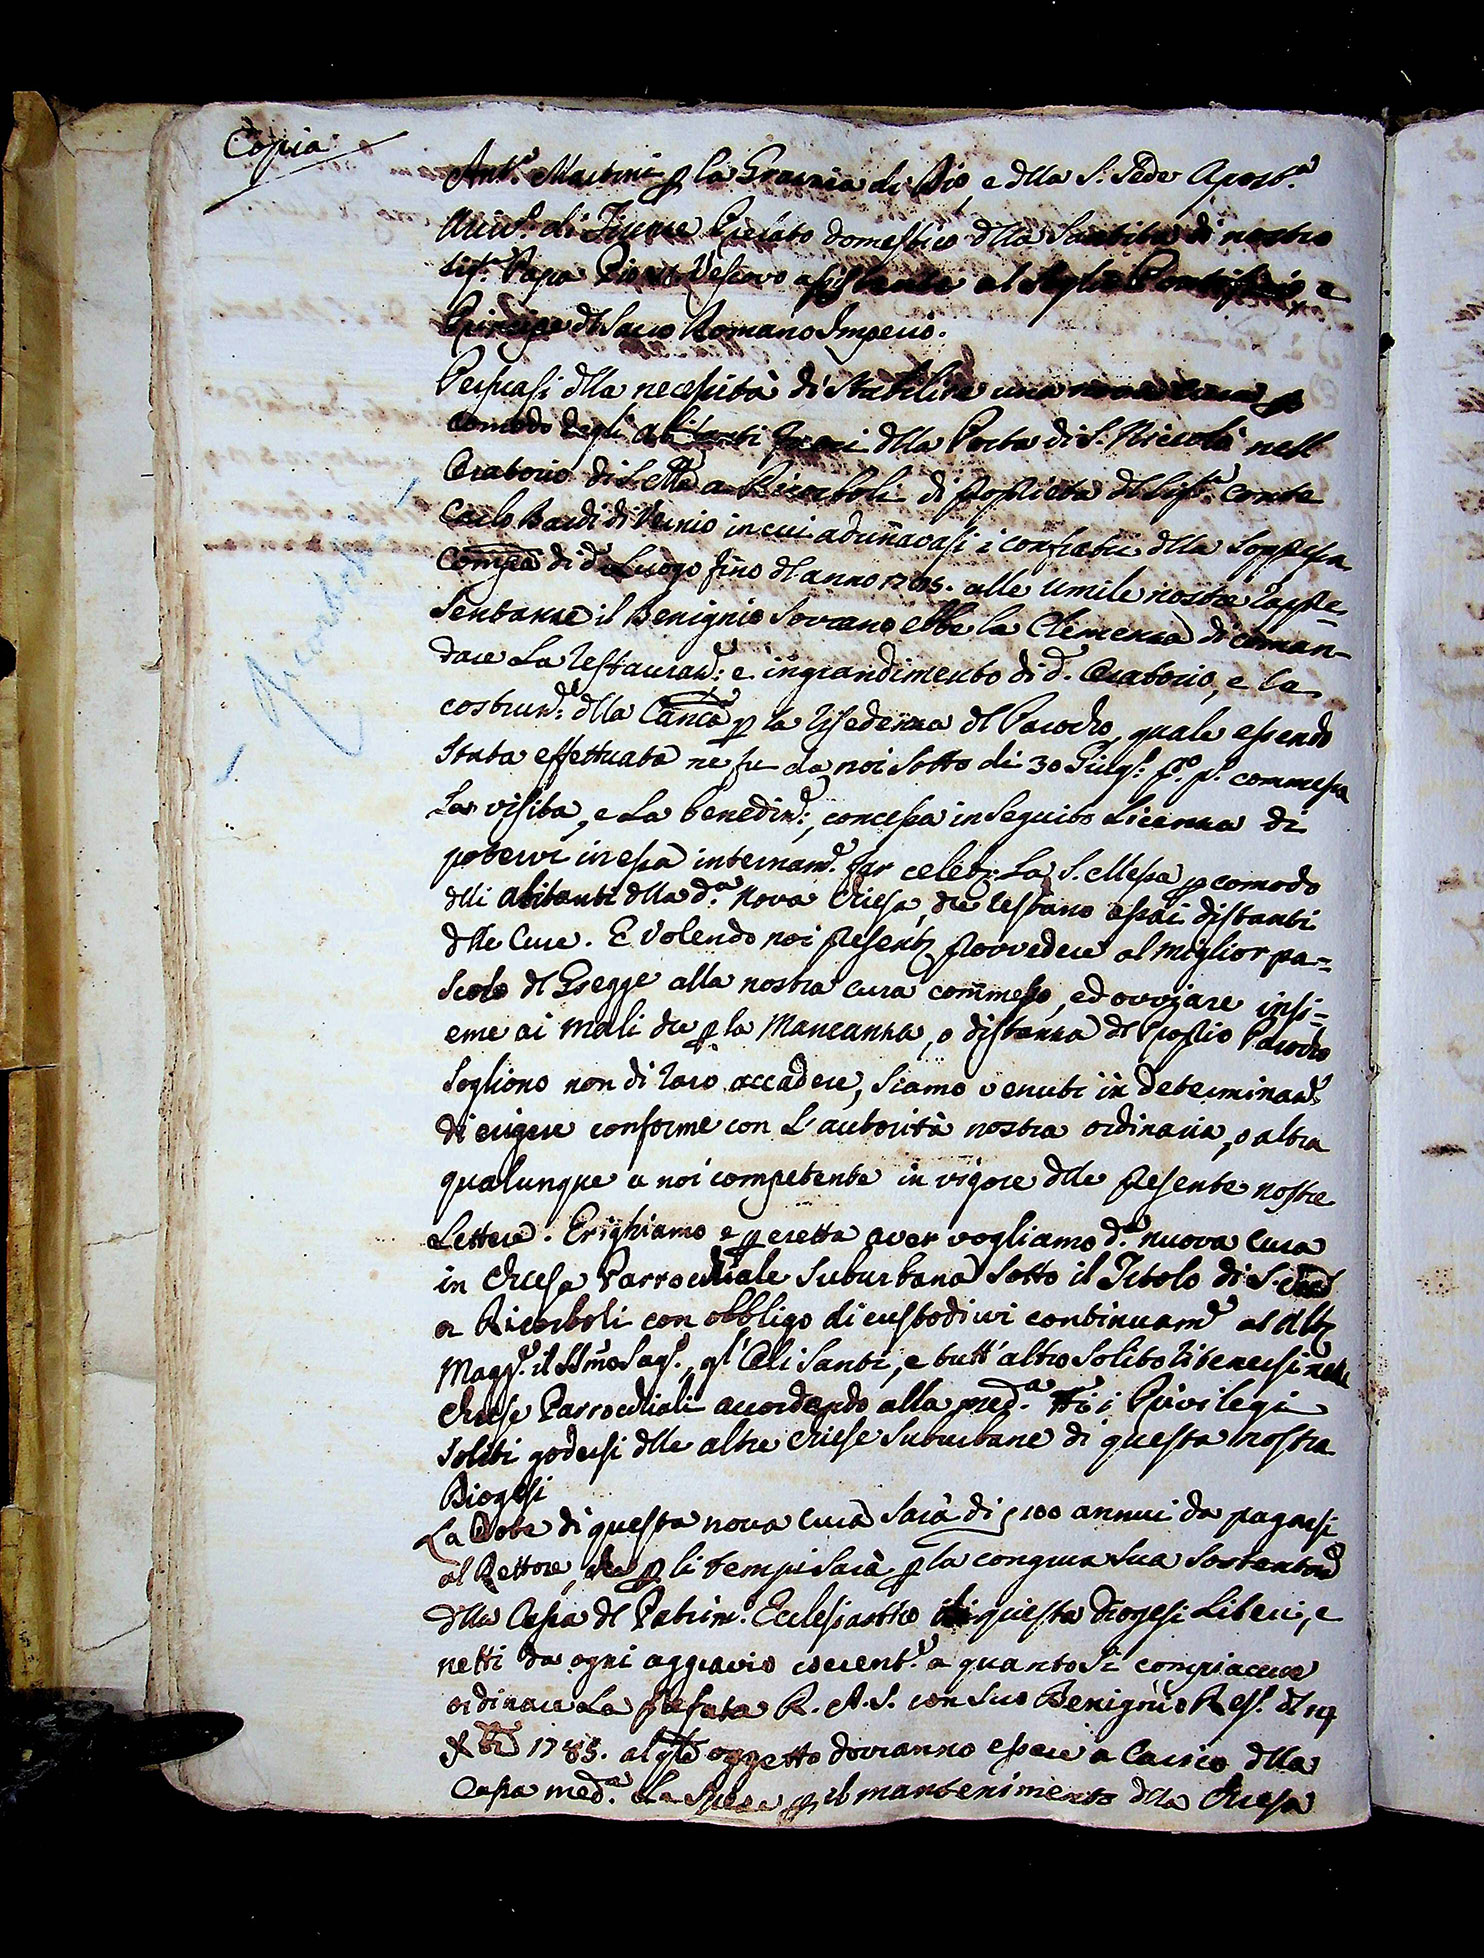 Copia
Ant.° Martini p la Grazia di Dio, e dlla S. Sede Apost.ª
Arciv.° di Firenze Prelato domestico dlla Santità di nostro
Sig.re Papa Pio VI. Vescovo assistente al Soglio Pontificio, e
Principe dl Sacro Romano Impero.
Persuasi dlla necessità di stabilire una nova Cura p
comodo degli abitanti fuori dlla Porta di S. Niccolò nell
Oratorio di S. Mª a Ricorboli di proprietà dl Sig.re Conte
Carlo Bardi di Vernio in cui adunavasi i confratri dlla soppressa
Compª di dº Luogo fino dl anno 1785. alle umile nostre rappre-
sentanze il Benignio Sovrano ebbe la Clemenza di coman-
dare La restauraz.e e ingrandimento di dº. Oratorio, e la
costruz.e dlla Canca p la residenza dl Parocho, quale essendo
stata effettuata ne fu da noi sotto di 30 Giug.° p.° p.° commessa
La visita, e La benediz.e, concessa in seguito Licenza di
potervi in essa internam.e far celebr. La S. Messa p comodo
dlli abitanti dlla d.ª nova Chiesa, che restano assai distanti
dlle Cure. E Volendo noi presentem. provvedere al miglior pa-
scolo dl Gregge alla nostra cura commesso, ed ovviare insi-
eme ai mali che p la Mancanza, o distanza dl Proprio Parocho
sogliono non di raro accadere, siamo venuti in determinaz.e
di erigere conforme con L'autorità nostra ordinaria, o altra
qualunque a noi competente in vigore dlle presente nostre
Lettere. Erighiamo e p eretta aver vogliamo d.ª nuova Cura
in Chiesa Parrochiale suburbana sotto il Titolo di S. Mª
a Ricorboli con obbligo di custodirvi continuam.e al Alt.
Magg.e il SSmo Sag.°, gl'Oli Santi, e tutt'altro solito ritenersi nelle
Chiese Parrochiali accordando alla med.ª tti i Privilegi
soliti godersi dlle altre Chiese suburbane di questa nostra
Diogesi
La Dote di questa nova Cura sarà di s 100 annui da pagarsi
al Rettore, che p li tempi sarà p la congrua sua sostentaz.e
dlla Cassa dl Patrim.° Ecclesiastico di questa diogesi Liberi, e
netti da ogni aggravio coerent.e a quanto si compiacque
ordinare La prefata R. A. S. con suo Benignio Res.° dl 14
Xbre 1785. al qle oggetto dovranno essere a Carico dlla
Cassa med.ª La spese p il mantenimento dlla Chiesa
- Ricorboli -